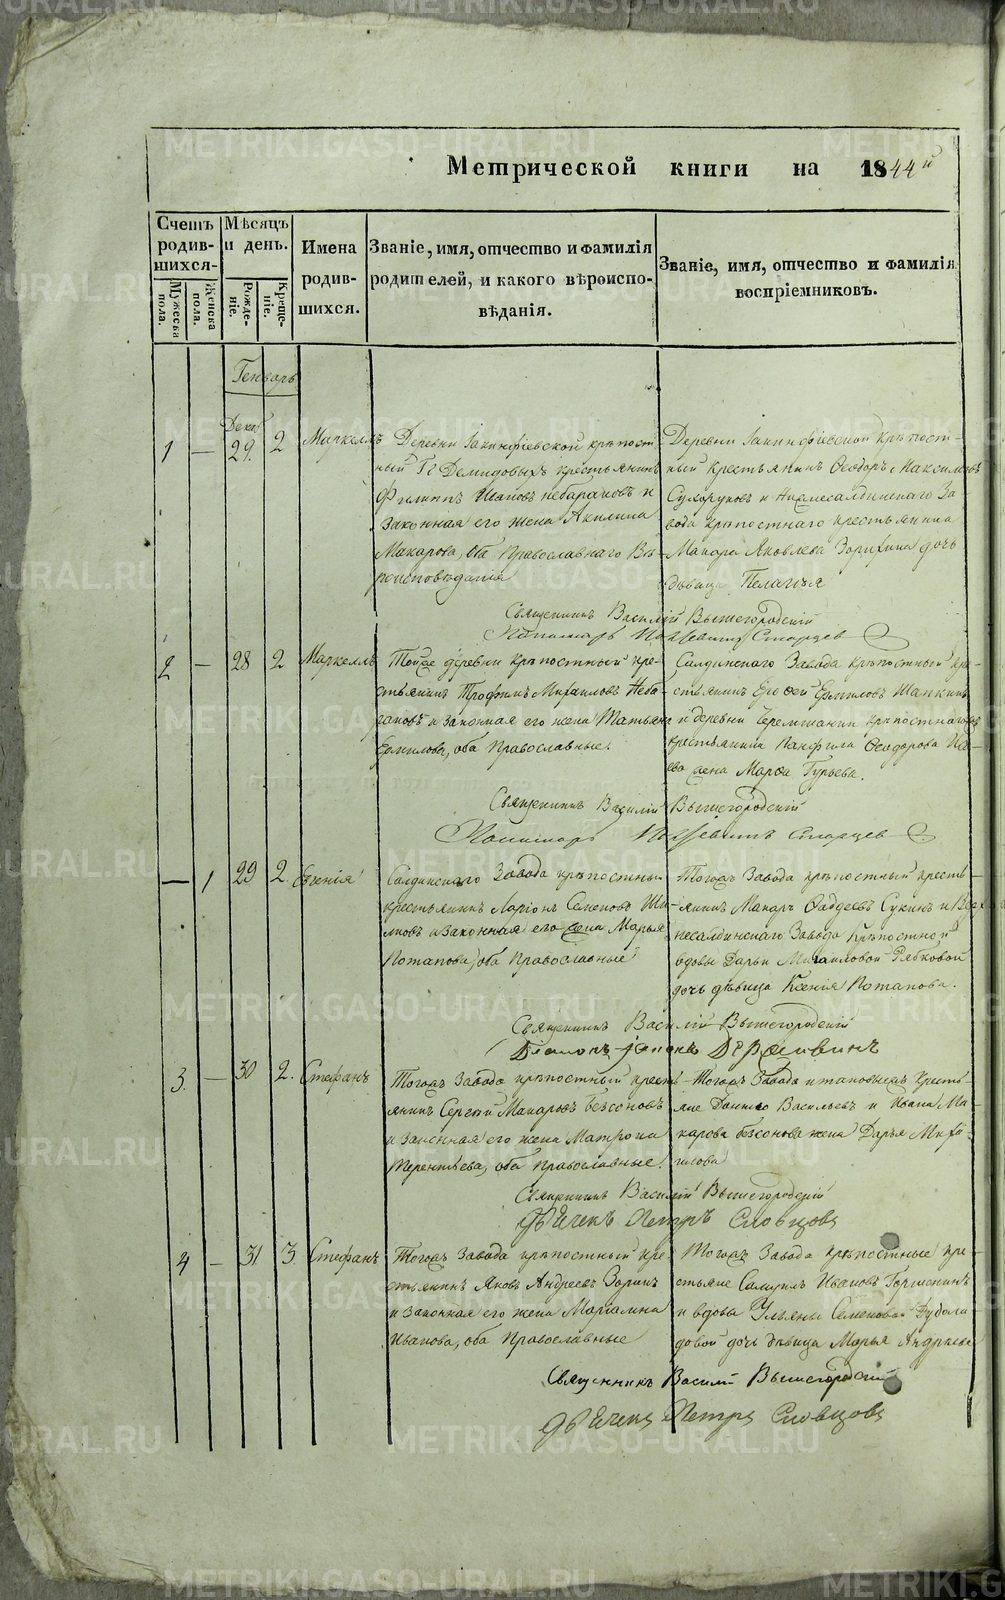 Метрической книги на 1844й
Счетъ родив-шихся.
Мѣсяцъ и день.
Имена родив-шихся.
Званіе, имя, отчество и фамилія
родителей, и какого вѣроиспо-
вѣданія.
Званіе, имя, отчество и фамилія
воспріемниковъ.
Мужеска пола.
Женска пола.
Рожде-ніе.
Креще-ніе.
Генварь
1 — Декаб 29. 2 Маркеллъ
Деревни Іакинфіевской крѣпост-
ный Гг Демидовыхъ крестьянинъ
Филиппъ Ивановъ Небарановъ и
Законная его жена Акилина
Макарова, оба Православнаго Вѣ-
роисповѣданія
Деревни Іакинфіевской Крѣпост-
ный крестьянинъ Феодоръ Максимовъ
Сухоруковъ и Нижнесалдинскаго За
вода крѣпостнаго крестьянина
Макара Яковлева Зорихина дочь
дѣвица Пелагія
Священникъ Василій Вышегородскій
Пономарь Старцев
2 — 28 2 Маркеллъ
Тойже деревни крѣпостный кре-
стьянинъ Трофимъ Михаиловъ Неба-
рановъ и законная его жена Татьяна
Ермилова, оба Православные.
Салдинскаго Завода крѣпостный кре-
стьянинъ Ерофей Ермиловъ Шапкинъ
и деревни крѣпостнаго
крестьянина Панфила Феодорова
жена Марфа Гурьева.
Священникъ Василій Вышегородскій
Пономарь Старцев
— 1 29 2. Евгенія
Салдинскаго Завода крѣпостный
крестьянинъ Ларіонъ Семеновъ
и законная его жена Марья
Потапова, оба Православные
Тогожъ Завода крѣпостный кресть-
янинъ Макаръ Фаддеевъ Сукинъ и Верх
несалдинскаго Завода Крѣпостной
вдовы Дарьи Михаиловой Рябковой
дочь дѣвица Ксенія Потапова.
Священникъ Василій Вышегородскій
3. — 30 2. Стефанъ
Тогожъ Завода крѣпостный кресть-
янинъ Сергѣй Макаровъ Безсоновъ
и законная его жена Матрона
Терентьева, оба православные.
Тогожъ Завода Кресть-
яне Данило Васильевъ и Ивана Ма-
карова Безсонова жена Дарья Миха-
илова
Священникъ Василій Вышегородскій
Дьячекъ Петръ Словцовъ
4 — 31 3. Стефанъ
Тогожъ Завода крѣпостный кре-
стьянинъ Яковъ Андреевъ Зоринъ
и Законная его жена Маріамна
Иванова, оба Православные
Тогожъ Завода Крѣпостные кре-
стьяне Самуилъ Ивановъ
и вдовы Ульяны Семеновой
довой дочь дѣвица Марья Андреева
Священникъ Василій Вышегородскій
Дьячекъ Петръ Словцовъ
METRIKI.GASO-URAL.RU